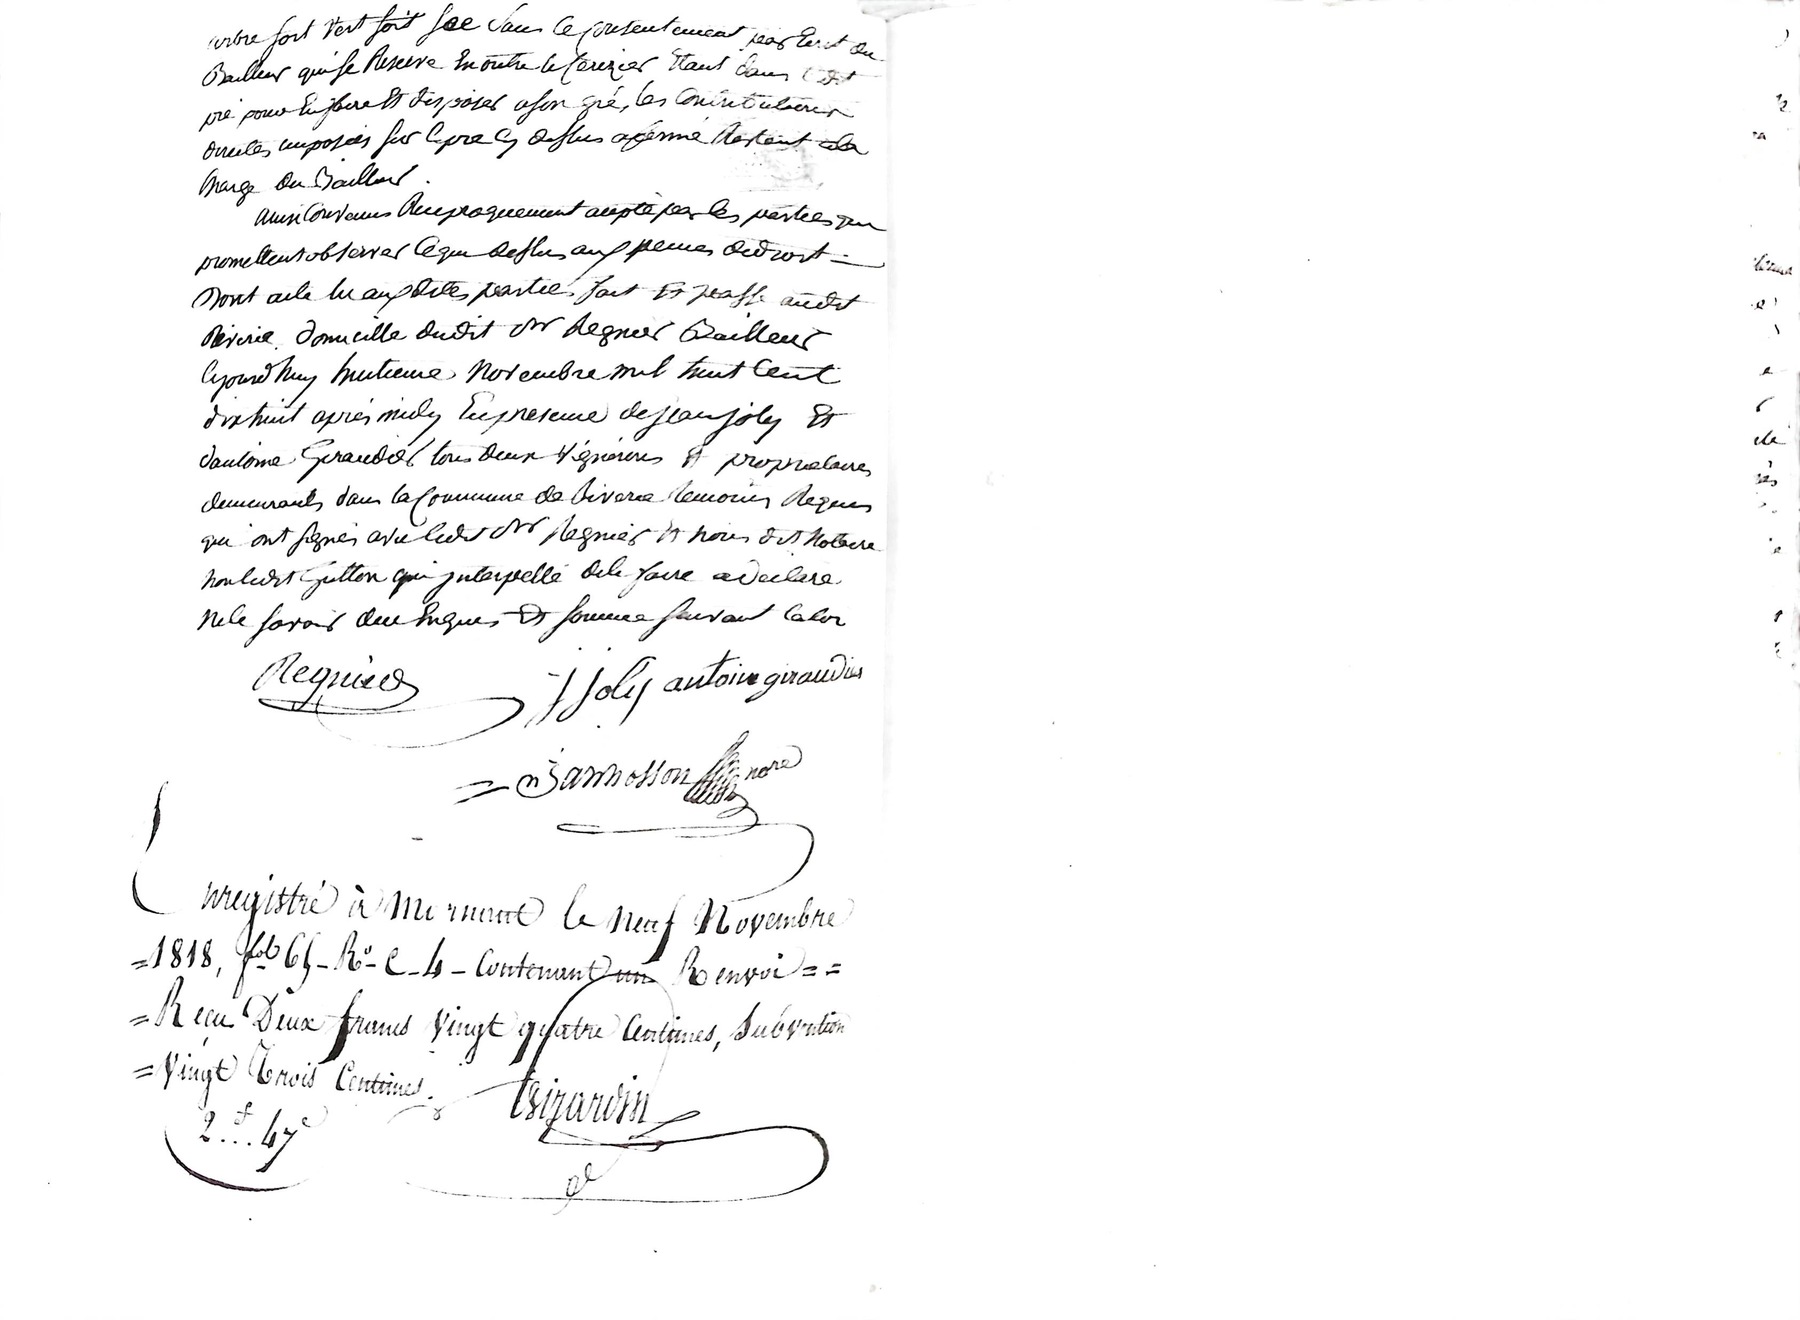 arbre soit vert soit sec sans le consentement par Ecrit du
Bailleur qui se Reserve En outre le Cerizier Etant dans ledit
pré pour En jouir Et disposer a son gré, les Contributions
directes imposées sur le pré Cy dessus afermé Restent a la
Charge du Bailleur.
ainsi Convenu Reciproquement accepté par les parties qui
promettent observer Ce que dessus aux peines de droit =
Dont acte lu auxdites parties fait Et passé audit
Riverie domicille dudit Sr Regnier Bailleur
Cejourd'huy huitieme Novembre mil huit Cent
dix huit après midy En presence de jean joly Et
d'antoine Giraudier tous deux vignerons Et proprietaires
demeurants dans la Commune de Riverie temoins Requis
qui ont signés avec ledit Sr Regnier Et nous dit Notaire
non ledit Guillon qui interpellé de le faire a declaré
ne le savoir de ce Enquis Et sommé suivant la loi
Regnier
j joly antoine giraudier
= Bannosson nore
Enregistré à Mornant le neuf Novembre
= 1818, fol. 65 - Ro - C - 4 - Contenant un Renvoi = =
= Reçu Deux francs vingt quatre Centimes, Subvention
= vingt Trois Centimes.
Girardin
2f... 47c